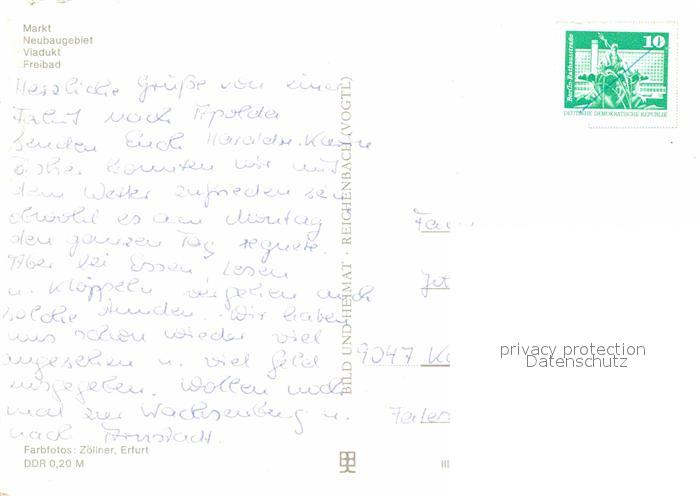 Markt
Neubaugebiet
Viadukt
Freibad
Herzliche Grüße von einer
Fahrt nach Apolda
senden Euch Harald u.
Bisher konnten wir mit
dem Wetter zufrieden sein
obwohl es am Montag
den ganzen Tag regnete.
Aber bei Essen, Lesen
u. Klöppeln vergehen auch
solche Stunden. Wir haben
uns schon wieder viel
angesehen u. viel Geld
ausgegeben. Wollen noch
mal zur Wachsenburg u.
nach Arnstadt.
Farbfotos: Zöllner, Erfurt
DDR 0,20 M
BILD UND HEIMAT · REICHENBACH (VOGTL)
III
Berlin, Rathausstraße
10
DEUTSCHE DEMOKRATISCHE REPUBLIK
9047
privacy protection
Datenschutz